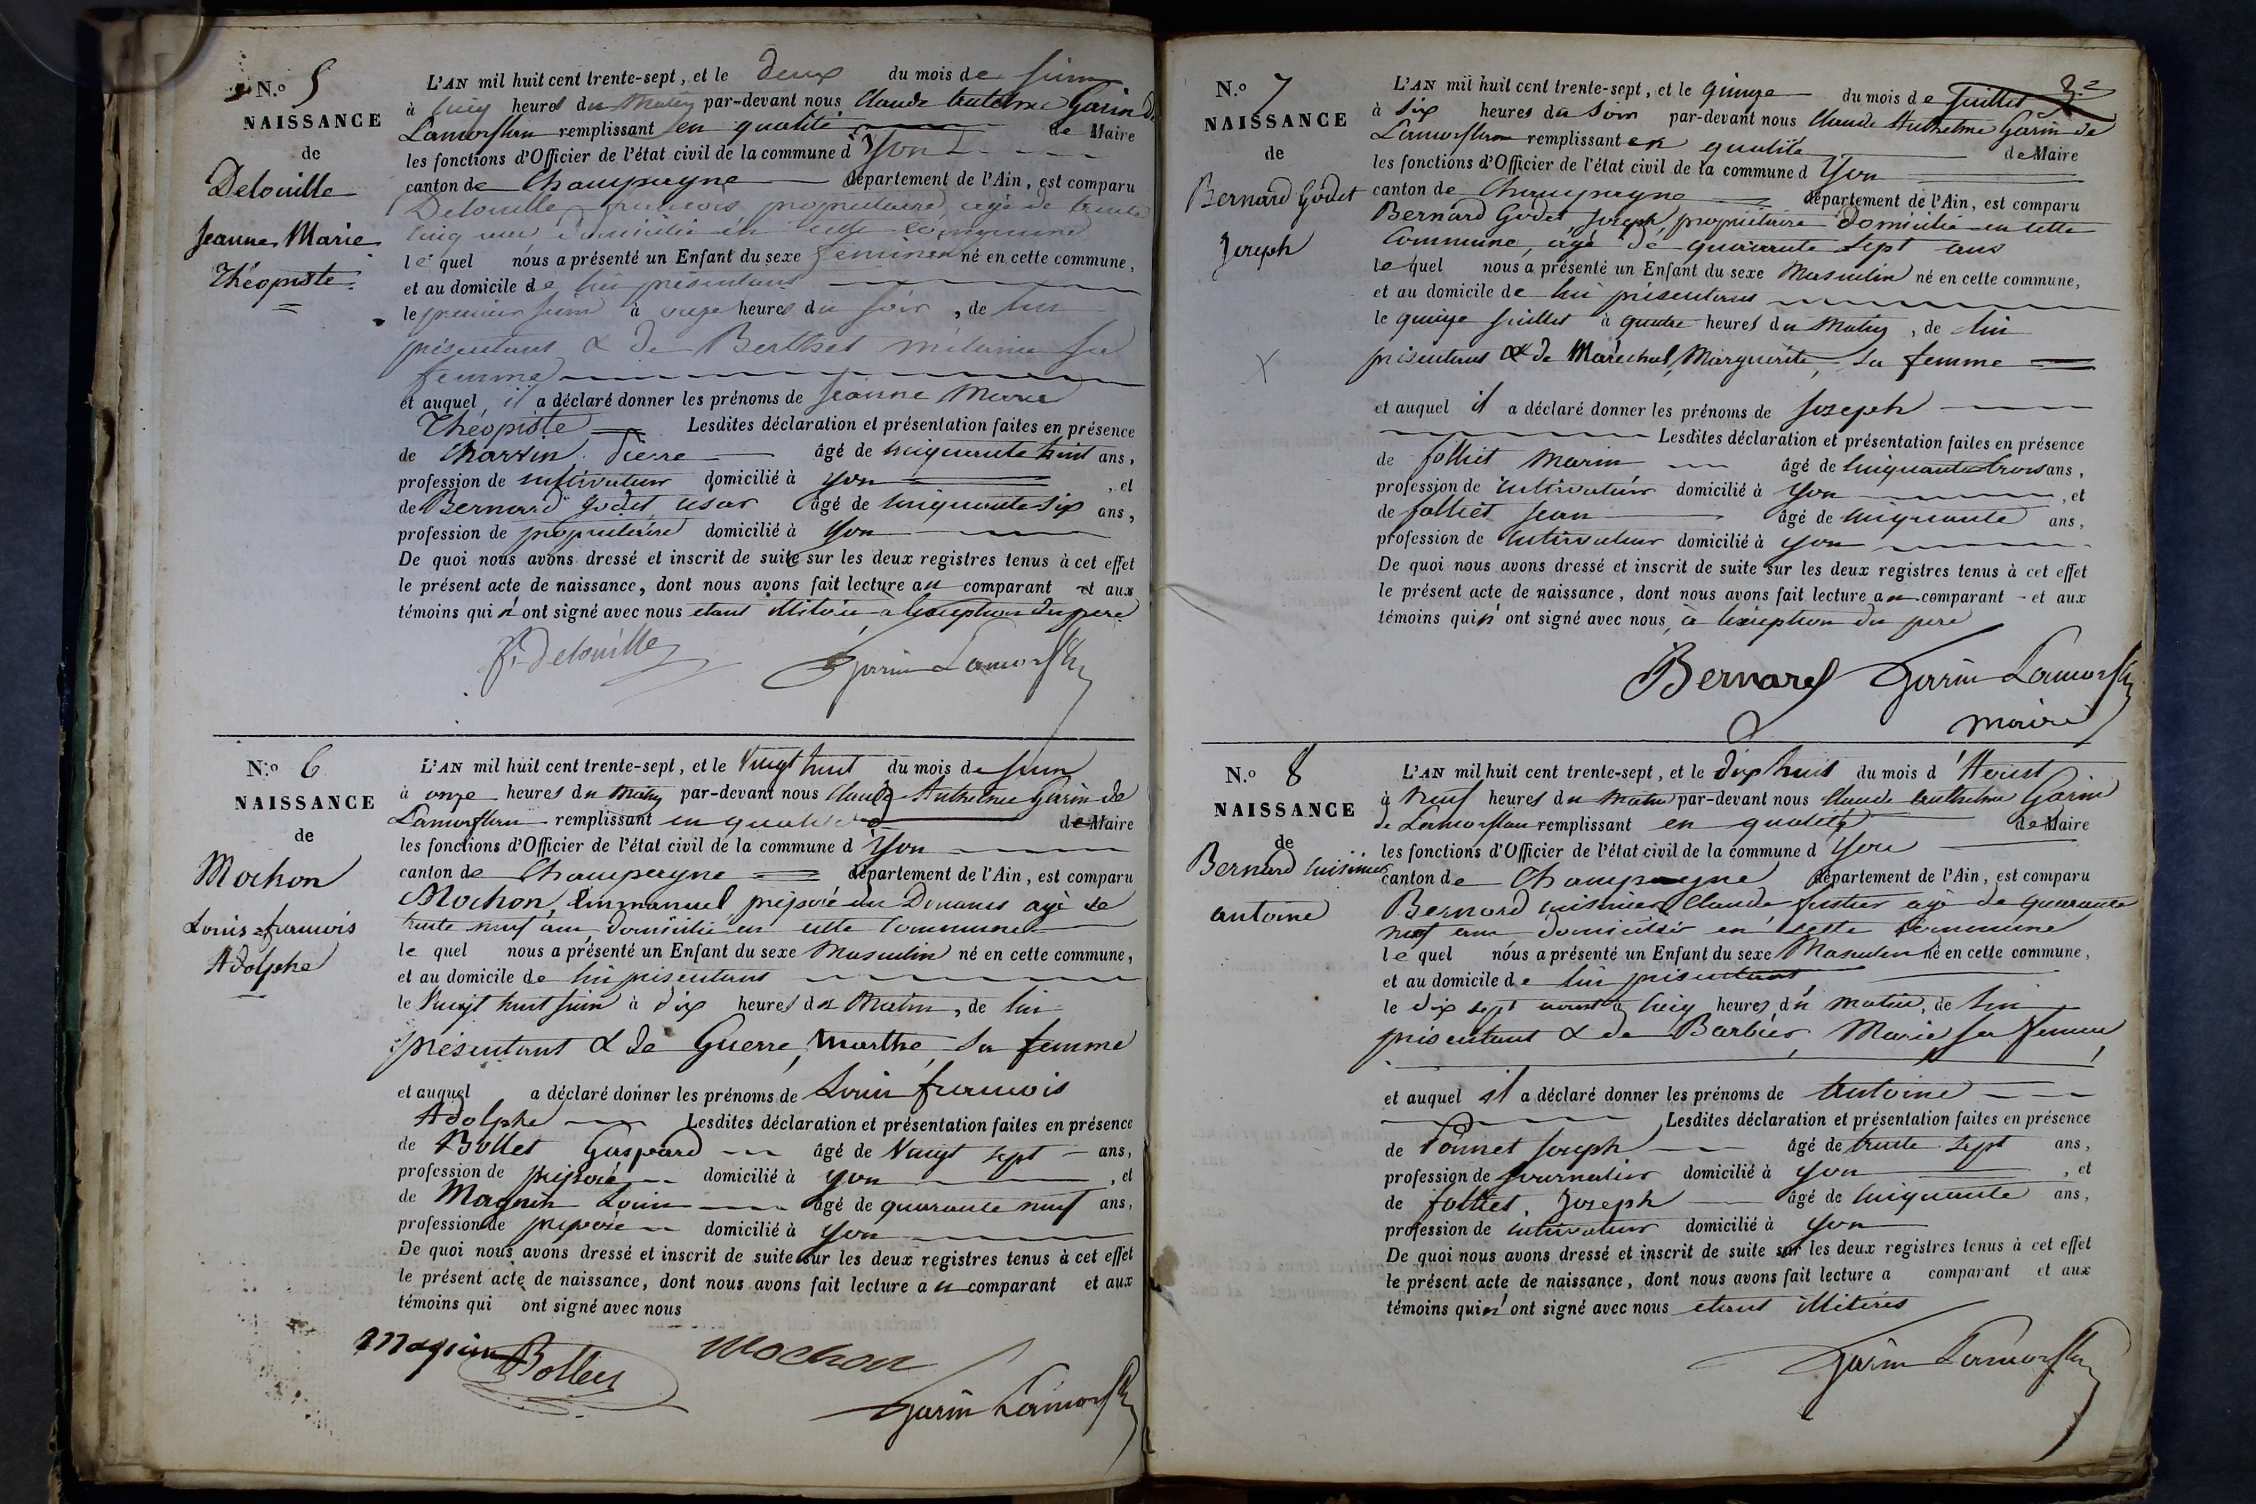 N.o 5
NAISSANCE
de
Delouille
Jeanne Marie
Théopiste
L'AN mil huit cent trente-sept, et le deux du mois de juin
à cinq heures du matin par-devant nous Claude Anthelme Garin de
Lamorflan remplissant en qualité de Maire
les fonctions d'Officier de l'état civil de la commune d'Yon
canton de Champagne département de l'Ain, est comparu
Delouille françois propriétaire, âgé de trente
cinq ans domicilié en cette commune
lequel nous a présenté un Enfant du sexe féminin né en cette commune,
et au domicile de lui présentant
le premier juin à onze heures du soir, de lui
présentant & de Berthet mélanie sa
femme
et auquel il a déclaré donner les prénoms de Jeanne Marie
Théopiste Lesdites déclaration et présentation faites en présence
de Charvin Pierre âgé de cinquante huit ans,
profession de cultivateur domicilié à yon, et
de Bernard godet cesar âgé de cinquante six ans,
profession de propriétaire domicilié à yon
De quoi nous avons dressé et inscrit de suite sur les deux registres tenus à cet effet
le présent acte de naissance, dont nous avons fait lecture au comparant et aux
témoins qui n'ont signé avec nous etant illitérés a lexception du pere
f. Delouille Garin Lamorflan
N.o 6
NAISSANCE
de
Mochon
Louis françois
Adolphe
L'AN mil huit cent trente-sept, et le Vingt huit du mois de juin
à onze heures du matin par-devant nous Claude Anthelme Garin de
Lamorflan remplissant en qualité de Maire
les fonctions d'Officier de l'état civil de la commune d'Yon
canton de Champagne département de l'Ain, est comparu
Mochon, Emmanuel préposé des Douanes âgé de
trente neuf ans, domicilié en cette Commune
lequel nous a présenté un Enfant du sexe Masculin né en cette commune,
et au domicile de lui présentant
le Vingt huit juin à dix heures du Matin, de lui
présentant & de Guerre, Marthe, sa femme
et auquel a déclaré donner les prénoms de Louis françois
Adolphe Lesdites déclaration et présentation faites en présence
de Bollet Gaspard âgé de Vingt sept ans,
profession de préposé domicilié à yon, et
de Magnin Louis âgé de quarante neuf ans,
profession de préposé domicilié à yon
De quoi nous avons dressé et inscrit de suite sur les deux registres tenus à cet effet
le présent acte de naissance, dont nous avons fait lecture au comparant et aux
témoins qui ont signé avec nous
Magnin Bollet Mochon
Garin Lamorflan
N.o 7
NAISSANCE
de
Bernard Godet
Joseph
L'AN mil huit cent trente-sept, et le quinze du mois de Juillet
à six heures du soir par-devant nous Claude Anthelme Garin de
Lamorflan remplissant en qualité de Maire
les fonctions d'Officier de l'état civil de la commune d'Yon
canton de Champagne département de l'Ain, est comparu
Bernard Godet joseph, propriétaire domicilié en cette
Commune, âgé de quarante sept ans
lequel nous a présenté un Enfant du sexe Masculin né en cette commune,
et au domicile de lui présentant
le quinze juillet à quatre heures du Matin, de lui
présentant & de Maréchal, Marguerite, sa femme
et auquel il a déclaré donner les prénoms de Joseph
Lesdites déclaration et présentation faites en présence
de folliet Marin âgé de cinquante trois ans,
profession de cultivateur domicilié à yon, et
de folliet Jean âgé de cinquante ans,
profession de cultivateur domicilié à yon
De quoi nous avons dressé et inscrit de suite sur les deux registres tenus à cet effet
le présent acte de naissance, dont nous avons fait lecture au comparant et aux
témoins qui n'ont signé avec nous, à lexception du pere
Bernard Garin Lamorflan
maire
N.o 8
NAISSANCE
de
Bernard cuisinier
antoine
L'AN mil huit cent trente-sept, et le dix huit du mois d'Aoust
à Neuf heures du matin par-devant nous Claude anthelme Garin
de Lamorflan remplissant en qualité de Maire
les fonctions d'Officier de l'état civil de la commune d'yon
canton de Champagne département de l'Ain, est comparu
Bernard cuisinier, Claude justier âgé de quarante
neuf ans domicilié en cette commune
lequel nous a présenté un Enfant du sexe Masculin né en cette commune,
et au domicile de lui présentant
le dix sept aoust à cinq heures du matin, de lui
présentant & de Barbier, Marie sa femme
et auquel il a déclaré donner les prénoms de Antoine
Lesdites déclaration et présentation faites en présence
de Ponnet Joseph âgé de trente sept ans,
profession de journalier domicilié à yon, et
de folliet Joseph âgé de cinquante ans,
profession de cultivateur domicilié à yon
De quoi nous avons dressé et inscrit de suite sur les deux registres tenus à cet effet
le présent acte de naissance, dont nous avons fait lecture a comparant et aux
témoins qui n'ont signé avec nous etant illitérés
Garin Lamorflan